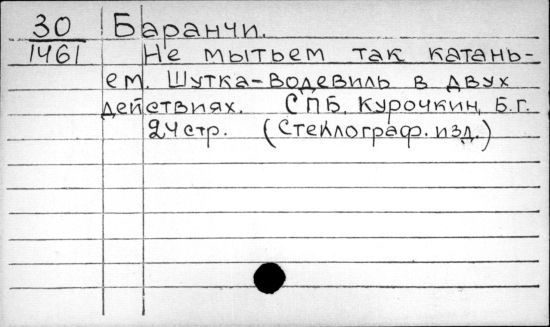 30 Баранчи.
1461 Не мытьем так катань-
ем. Шутка-водевиль в двух
действиях. СПБ, Курочкин, Б.г.
24 стр. (Стеклограф. изд.)